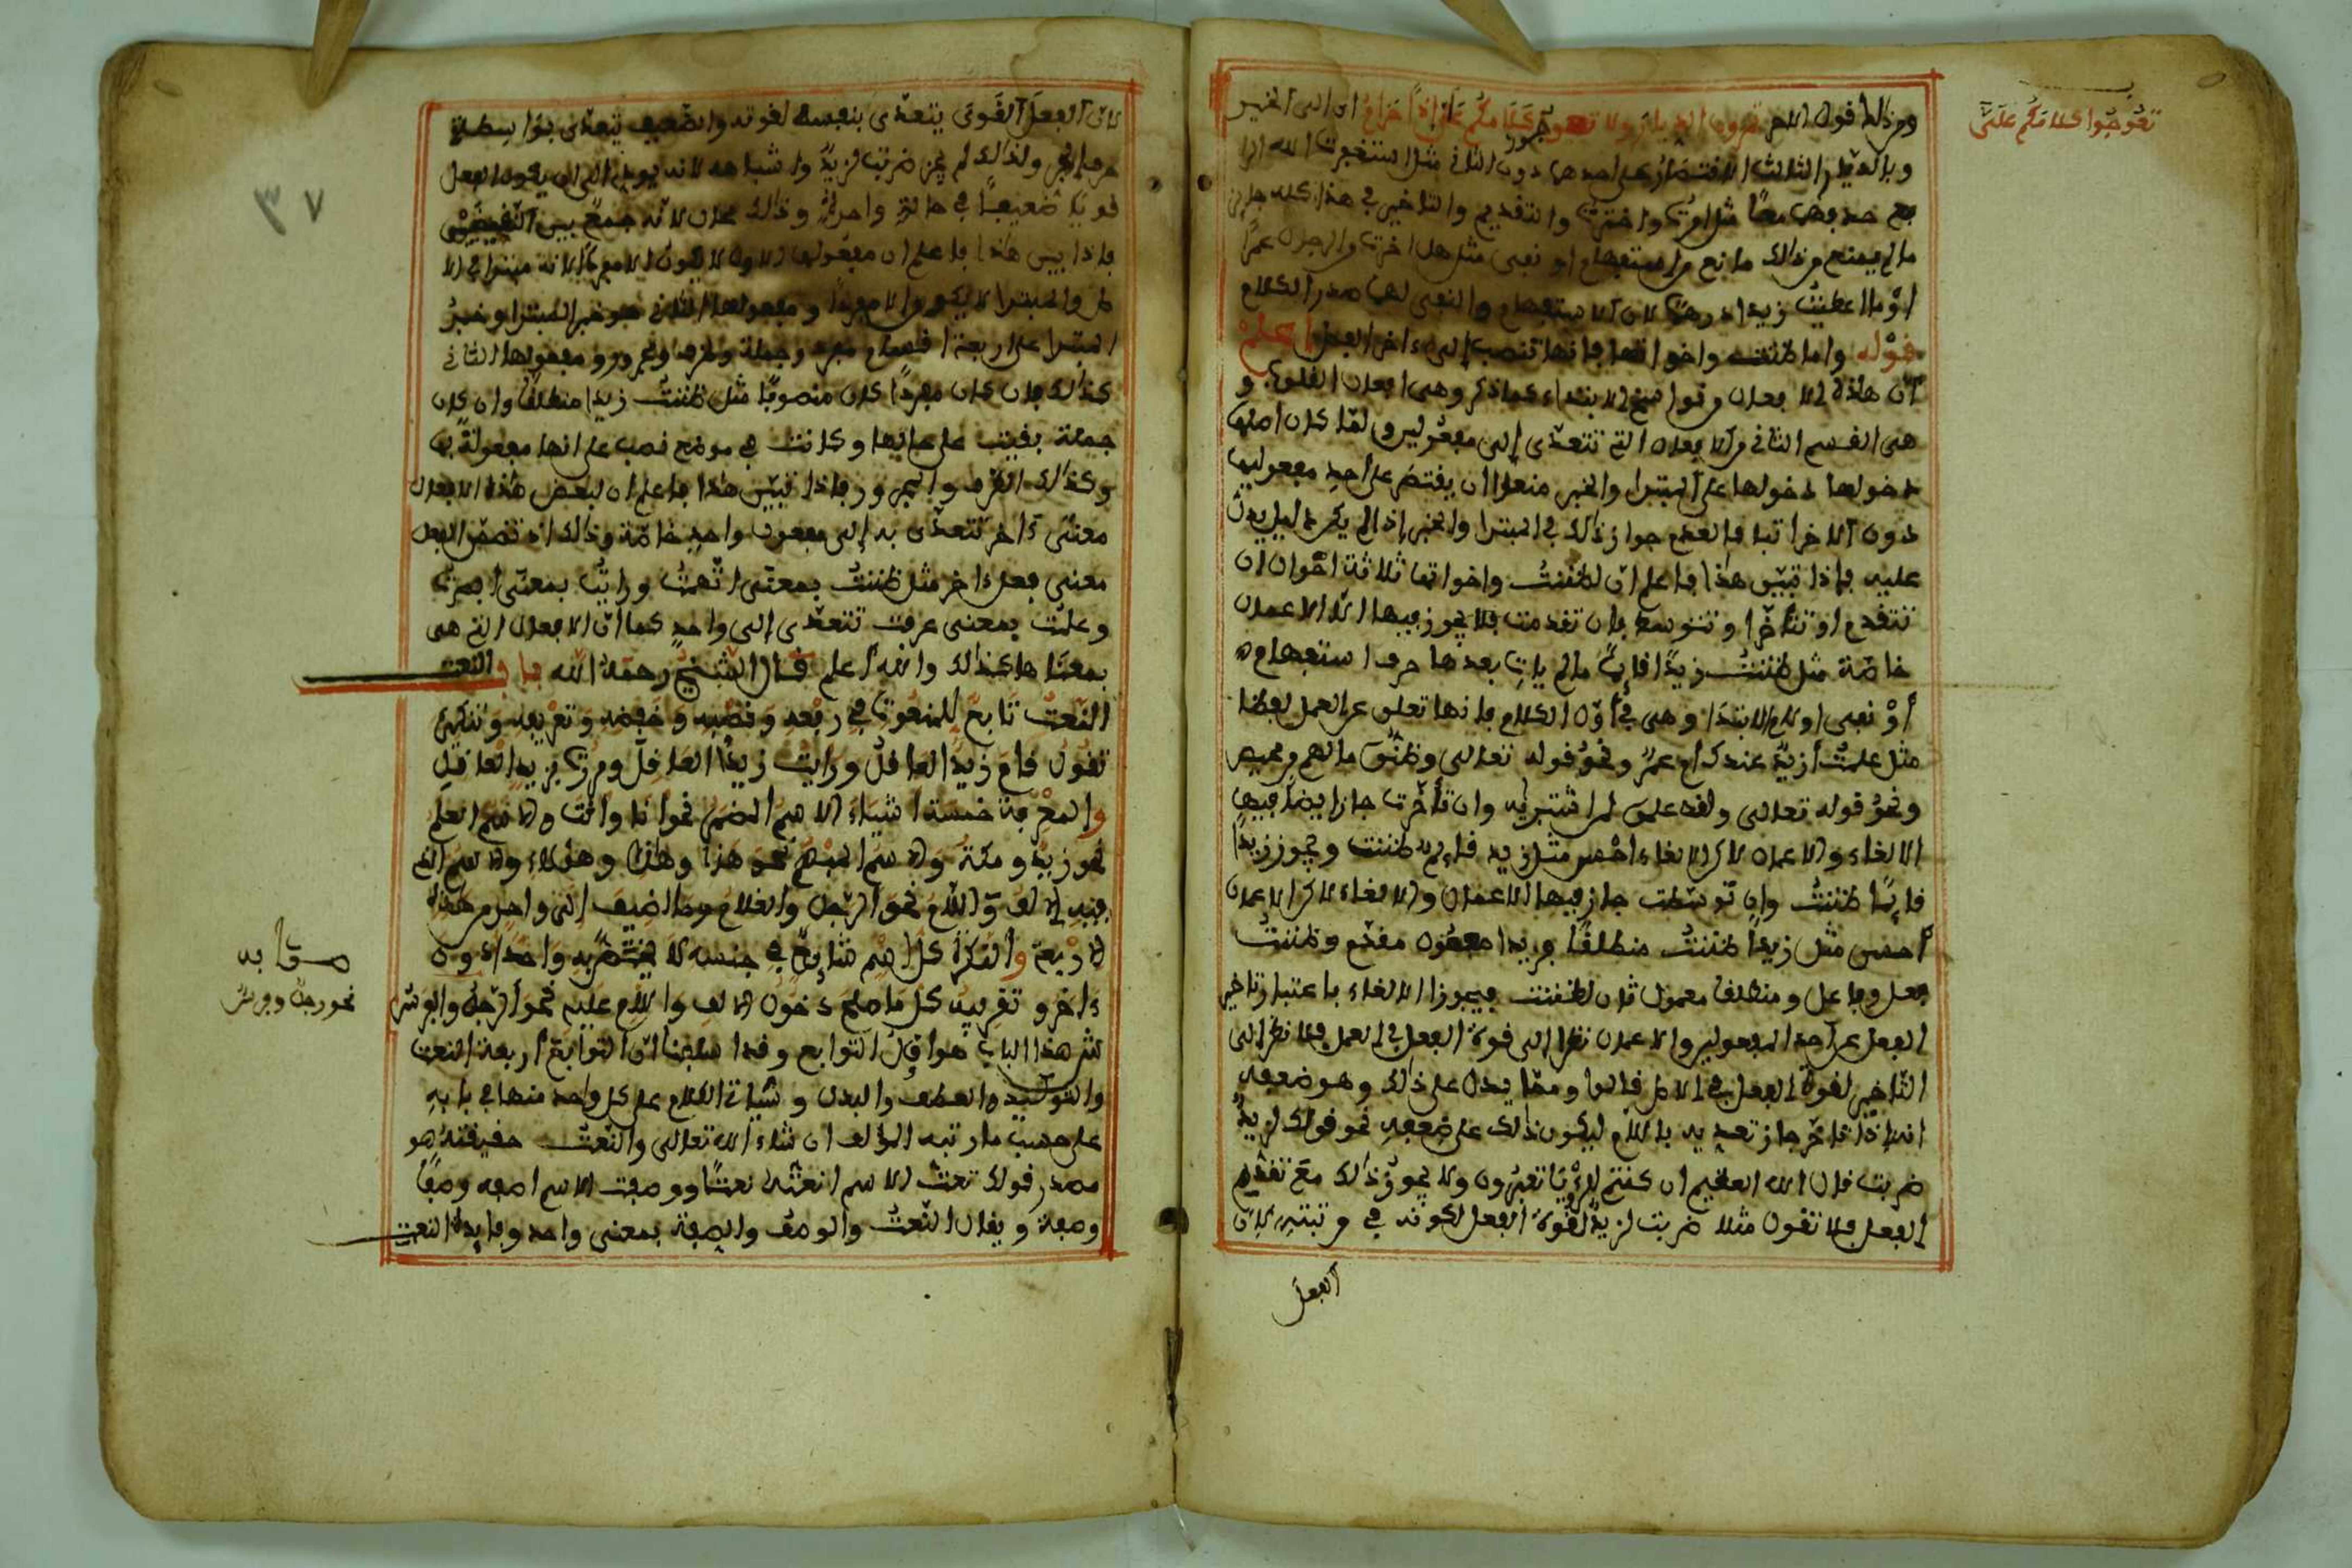 ومن ذلك قول الشاعر تمرون الديار ولا تعوجوا كلامكم علي إذا حرام اي الى الخبر
تعوجوا كلامكم علي
وبالدليل الثالث الاقتصار على احدهما دون الثاني مثل استغفرت الله او
مع حذفهما معا مثل امرت واخترت والتقديم والتاخير في هذا كله جايز
ما لم يمنع من ذلك مانع من استفهام او نفي مثل هل اخترت الرجال عمرا
او ما اعطيت زيدا درهما لان الاستفهام والنفي لهما صدر الكلام
قوله واما ظننت واخواتها فانها تنصب الى اخر الفصل اعلم
أن هذه الافعال من نواسخ الابتداء كما ذكر وهي افعال القلوب و
هي القسم الثاني من الافعال التي تتعدى إلى مفعولين ولما كان اصلها
دخولها دخولها على المبتدا والخبر منعوا ان يقتصر على احد مفعوليها
دون الاخر اتباعا لعدم جواز ذلك في المبتدا والخبر إذا لم يكن دليل يدل
عليه فإذا تبين هذا فاعلم ان لظننت واخواتها ثلاثة احوال ان
تتقدم او تتأخر او تتوسط فان تقدمت فلا يجوز فيها الا الاعمال
خاصة مثل ظننت زيدا قايما ما لم يات بعدها حرف استفهام
أو نفي او لام الابتدا وهي في أول الكلام فانها تعلق عن العمل لفظا
مثل علمت أزيد عندك ام عمرو ونحو قوله تعالى وظنوا ما لهم من محيص
ونحو قوله تعالى ولقد علموا لمن اشتريه وان تأخرت جاز ايضا فيها
الالغاء والاعمال لاكن الالغاء احسن مثل زيد قايم ظننت ويجوز زيدا
قايما ظننت وإن توسطت جاز فيها الاعمال والالغاء لاكن الاعمال
أحسن مثل زيدا ظننت منطلقا فزيدا مفعول مقدم وظننت
فعل وفاعل ومنطلقا مفعول ثان لظننت فيجوز الالغاء باعتبار تاخير
الفعل عن احد المفعولين والاعمال نظرا الى قوة الفعل في العمل فلما نظر الى
التاخير لقوة الفعل في الاصل قالوا ومما يدل على ذلك وهو ضعفه
انه إذا تاخر جاز تعديه باللام ليكون ذلك على ضعفه نحو قولك لزيد
ضربت قال الله العظيم ان كنتم للرؤيا تعبرون ولا يجوز ذلك مع تقديم
الفعل فلا تقول مثلا ضربت لزيد لقوة الفعل لكونه في مرتبته لان
الفعل
٣٧
لان الفعل القوي يتعدى بنفسه لقوته والضعيف يتعدى بواسطة
حرف الجر ولذلك لم يجز ضربت لزيد واشباهه لانه يودي الى ان يكون الفعل
قويا ضعيفا في حالة واحدة وذلك محال لانه جمع بين النقيضين
فاذا تبين هذا فاعلم ان مفعولها الاول لا يكون الا معربا لانه مبتدا في الا
صل والمبتدا لا يكون الا مفردا ومفعولها الثاني هو خبر المبتدا وخبر
المبتدا على اربعة اقسام مفرد وجملة وظرف ومجرور ومفعولها الثاني
كذلك فان كان مفردا كان منصوبا مثل ظننت زيدا منطلقا وان كان
جملة بقيت على حالها وكانت في موضع نصب على انها مفعولة بها
وكذلك الظرف والمجرور فاذا تبين هذا فاعلم ان لبعض هذه الافعال
معنى ءاخر تتعدى به إلى مفعول واحد خاصة وذلك اذا تضمن الفعل
معنى فعل ءاخر مثل ظننت بمعنى اتهمت ورايت بمعنى ابصرت
وعلمت بمعنى عرفت تتعدى إلى واحد كما ان الافعال التي هي
بمعناها كذلك والله أعلم قال الشيخ رحمه الله باب النعت
النعت تابع للمنعوت في رفعه ونصبه وخفضه وتعريفه وتنكيره
تقول قام زيد العاقل ورايت زيدا العاقل ومررت بزيد العاقل
والمعرفة خمسة اشياء الاسم المضمر نحو انا وانت والاسم العلم
نحو زيد ومكة والاسم المبهم نحو هذا وهذه وهؤلاء والاسم الذي
فيه الالف واللام نحو الرجل والغلام وما اضيف إلى واحد من هذه
الاربعة والنكرة كل اسم شايع في جنسه لا يختص به واحد دون
مقابه
ءاخر وتقريبه كل ما صلح دخول الالف واللام عليه نحو الرجل والفرس
نحو رجل وفرس
ش هذا الباب هو اول التوابع وقد اسلفنا ان التوابع أربعة النعت
والتوكيد والعطف والبدل وسياتي الكلام على كل واحد منها في بابه
على حسب ما رتبه المؤلف ان شاء الله تعالى والنعت حقيقته هو
مصدر قولك نعت الاسم انعته نعتا ووصفت الاسم اصفه وصفا
وصفة ويقال النعت والوصف والصفة بمعنى واحد وفايدة النعت